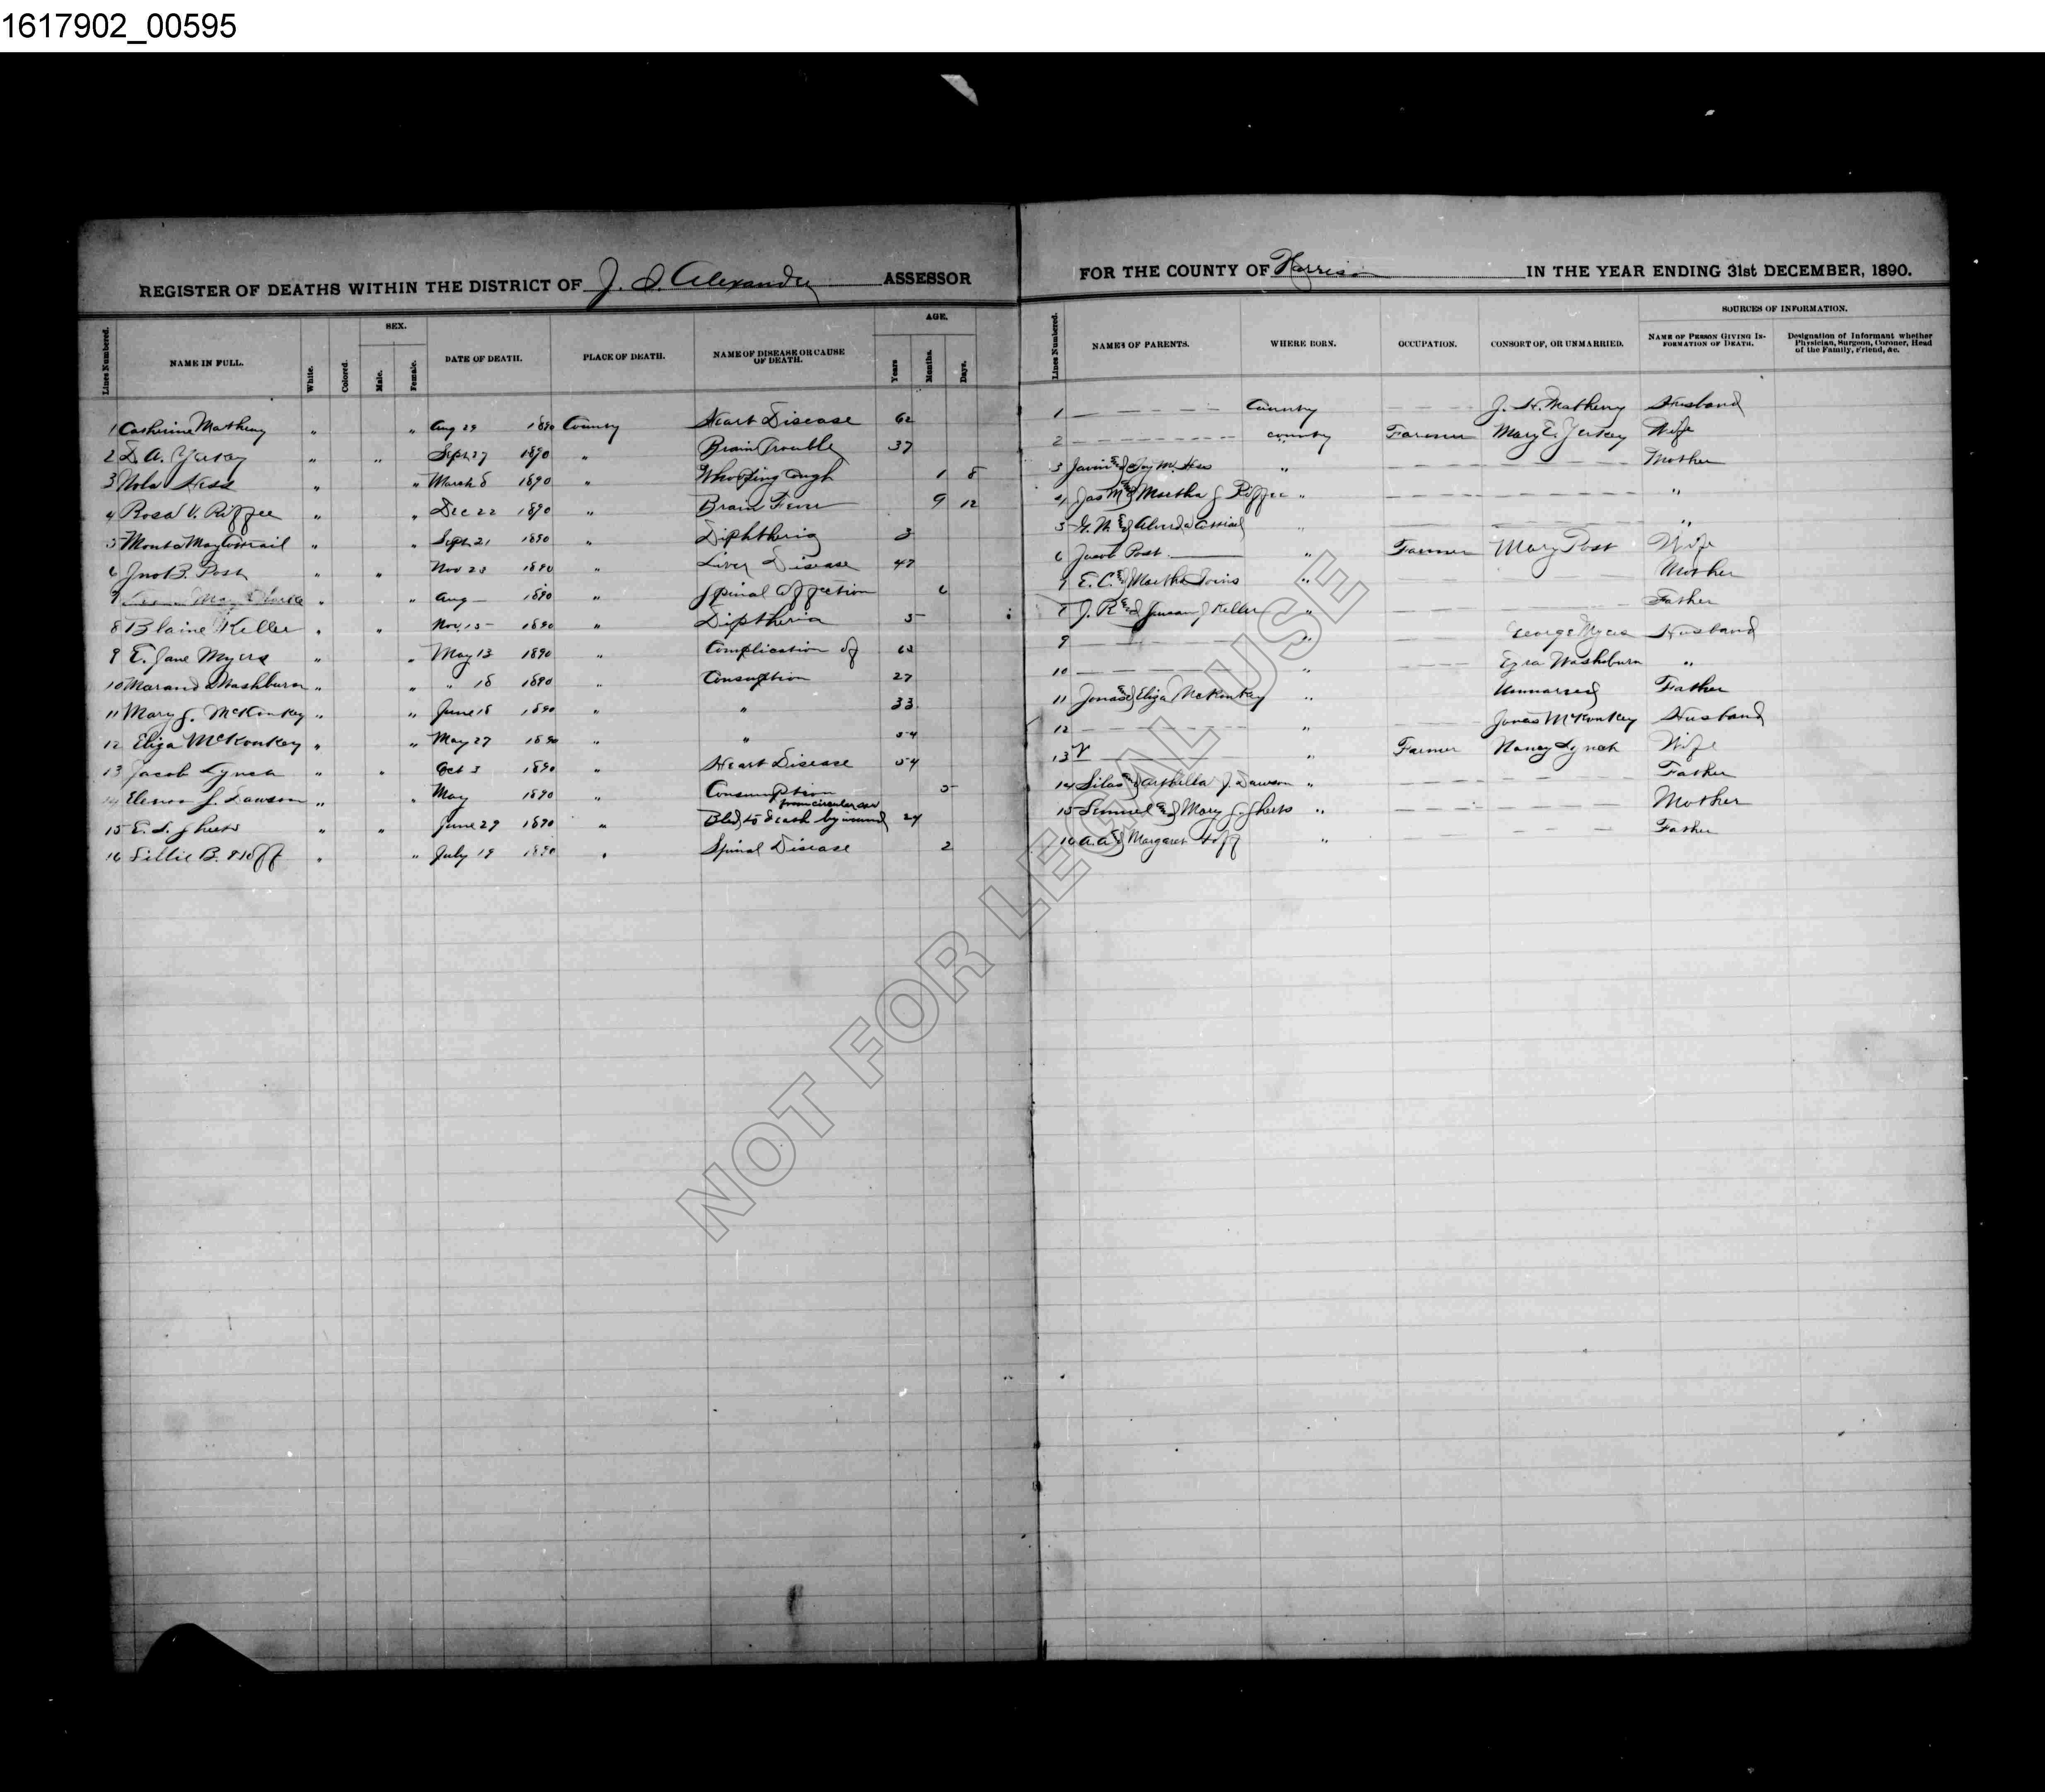 1617902_00595
REGISTER OF DEATHS WITHIN THE DISTRICT OF J. S. Alexander ASSESSOR
FOR THE COUNTY OF Harrison IN THE YEAR ENDING 31st DECEMBER, 1890.
Lines Numbered. NAME IN FULL. White. Colored. SEX. Male. Female. DATE OF DEATH. PLACE OF DEATH. NAME OF DISEASE OR CAUSE OF DEATH. AGE. Years Months. Days.
Lines Numbered. NAMES OF PARENTS. WHERE BORN. OCCUPATION. CONSORT OF, OR UNMARRIED. SOURCES OF INFORMATION. NAME OF PERSON GIVING INFORMATION OF DEATH. Designation of Informant whether Physician, Surgeon, Coroner, Head of the Family, Friend, &c.
1 Catherine Matheny " " Aug 29 1890 County Heart Disease 62
2 D. A. Yerkey " " Sept 27 1890 " Brain Trouble 37
3 Nola Hess " " March 8 1890 " Whooping Cough 1 8
4 Rosa V. Riffee " " Dec 22 1890 " Brain Fever 9 12
5 May " " Sept 21 1890 " Diphtheria 3
6 Jno B. Post " " Nov 23 1890 " Liver Disease 47
7 May " " Aug — 1890 " Spinal Affection 6
8 Blaine Keller " " Nov. 15 1890 " Diptheria 5
9 E. Jane Myers " " May 13 1890 " Complication of 63
10 Maranda Washburn " " " 18 1890 " Consuption 27
11 Mary J. McKonkey " " June 18 1890 " " 33
12 Eliza McKonkey " " May 27 1890 " " 54
13 Jacob Lynch " " Oct 3 1890 " Heart Disease 54
14 J. Dawson " " May 1890 " Consumption 5
15 E. S. Sheets " " June 29 1890 " Bled to death by wound from circular saw 24
16 Lillie B. Hoff " " July 19 1890 " Spinal Disease 2
1 County J. H. Matheny Husband
2 County Farmer Mary E. Yerkey Wife
3 & M. Hess " Mother
4 Jas M & Martha J Riffee " "
5 G. W. & " "
6 Jacob Post " Farmer Mary Post Wife
7 E. C. & Martha " Mother
8 J. R. & J Keller " Father
9 " George Myers Husband
10 " Ezra Washburn "
11 Jonas & Eliza McKonkey " Unmarried Father
12 " Jonas McKonkey Husband
13 " Farmer Nancy Lynch Wife
14 Silas & J. Dawson " Father
15 & Mary J. Sheets " Mother
16 A. A. & Margaret Hoff " Father
NOT FOR LEGAL USE